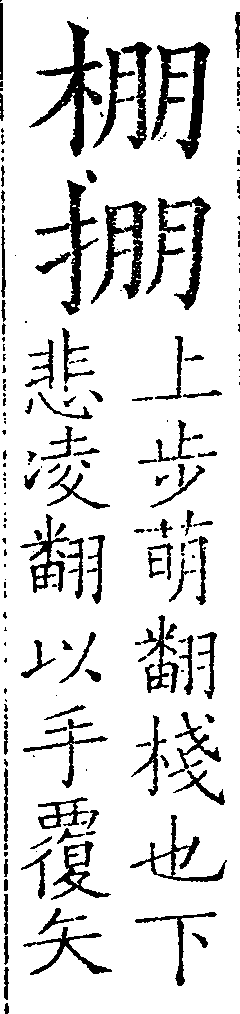 棚掤
上步萌翻棧也下
悲凌翻以手覆矢